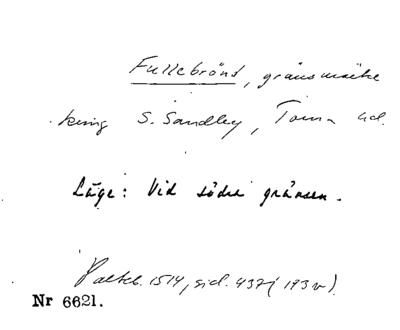 Fullebrönd, gränsmärke
kring S. Sandby, Torna hd.
Läge: Vid södra gränsen.
Palteb. 1514, sid. 437 (193 v).
Nr 6621.